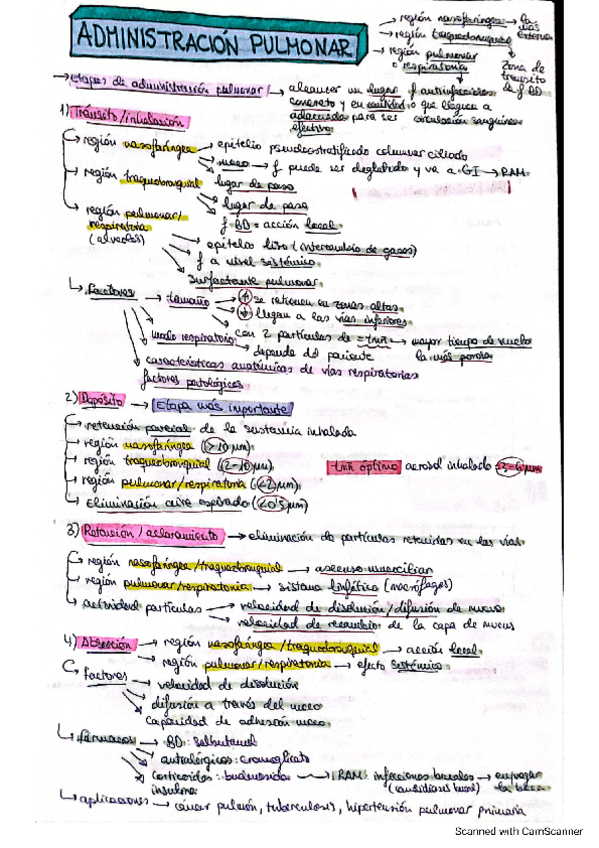 ADMINISTRACIÓN PULMONAR
→ región nasofaríngea → la más externa
→ región traqueobronquial
→ región pulmonar o respiratoria
zona de tránsito de f BD
→ etapas de administración pulmonar → alcanzar un lugar concreto y en cantidad adecuada para ser efectivo
f antiinfecciosos o que llegue a circulación sanguínea
1) Tránsito/inhalación
región nasofaríngea → epitelio pseudoestratificado columnar ciliado
→ moco → f puede ser deglutido y va a GI → RAM
región traqueobronquial → lugar de paso
→ lugar de paso
→ f BD = acción local
región pulmonar/respiratoria (alveolos)
→ epitelio liso (intercambio de gases)
→ f a nivel sistémico
→ surfactante pulmonar
↳ Factores → tamaño → ↑ se retienen en zonas altas
→ ↓ llegan a las vías inferiores
→ con 2 partículas de = tmñ → mayor tiempo de vuelo la más porosa
→ modo respiratorio → depende del paciente
→ características anatómicas de vías respiratorias
factores patológicos
2) Depósito → Etapa más importante
→ retención parcial de la sustancia inhalada
→ región nasofaríngea (>10 μm)
→ región traqueobronquial (2-10) μm
→ región pulmonar/respiratoria (<2 μm)
→ eliminación aire espirado (<0'5 μm)
tmñ óptimo aerosol inhalado μm
3) Retención/aclaramiento → eliminación de partículas retenidas en las vías
→ región nasofaríngea/traqueobronquial → ascenso mucociliar
→ región pulmonar/respiratoria → sistema linfático (macrófagos)
→ actividad partículas → velocidad de disolución/difusión de moco
→ velocidad de recambio de la capa de mucus
4) Absorción → región nasofaríngea/traqueobronquial → acción local
→ región pulmonar/respiratoria → efecto sistémico
Factores → velocidad de disolución
difusión a través del moco
capacidad de adhesión moco
↳ fármacos → BD: salbutamol
antialérgicos: cromoglicato
corticoides: budesonida → RAM: infecciones bucales (candidiasis bucal) → enjuagar la boca
insulina
↳ aplicaciones → cáncer pulmón, tuberculosis, hipertensión pulmonar primaria
Scanned with CamScanner